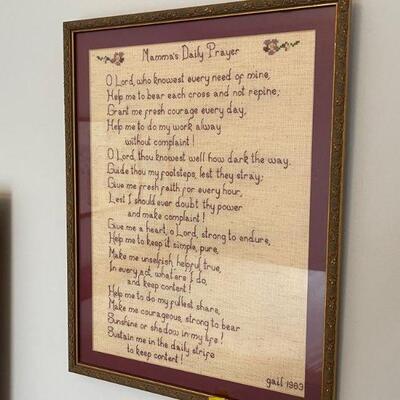 Mamma's Daily Prayer
O Lord, who knowest every need of mine,
Help me to bear each cross and not repine;
Grant me fresh courage every day,
Help me to do my work alway
without complaint!
O Lord, thou knowest well how dark the way,
Guide thou my footsteps, lest they stray;
Give me fresh faith for every hour,
Lest I should ever doubt thy power
and make complaint!
Give me a heart, o Lord, strong to endure,
Help me to keep it simple, pure,
Make me unselfish, helpful, true,
In every act, what'ere I do,
and keep content!
Help me to do my fullest share,
Make me courageous, strong to bear
Sunshine or shadow in my life!
Sustain me in the daily strife
to keep content!
gail 1983